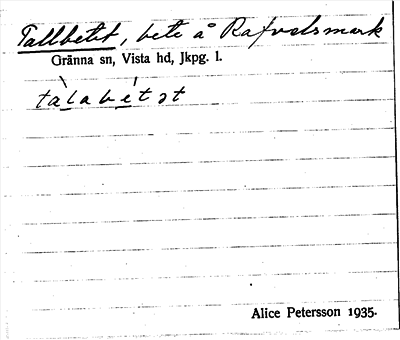 Tallbetet, bete å Rafvelsmark
Gränna sn, Vista hd, Jkpg. l.
tàlabétət
Alice Petersson 1935.